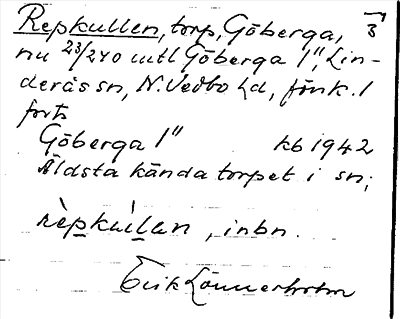 Repkullen, torp, Göberga, 3
nu 23/240 mtl Göberga 1", Lin-
deråssn, N. Vedbo hd, Jönk. l
forts
Göberga 1" kb 1942
Äldsta kända torpet i sn;
rèpkùlan, inbn.
Erik Lönnerholm